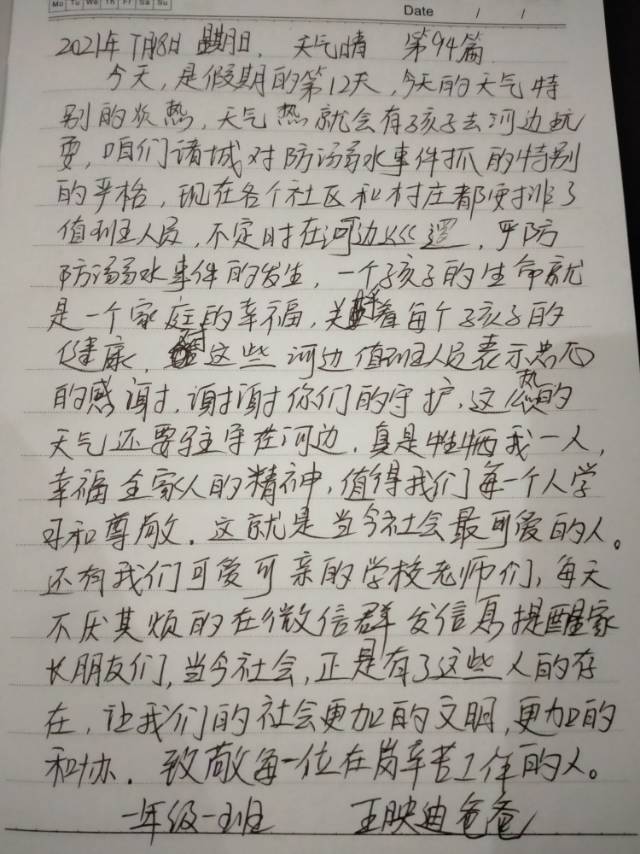 Mo Tu We Th Fr Sa Su
Date / /
2021年7月8日 星期日. 天气晴 第94篇
今天,是假期的第12天,今天的天气特
别的炎热,天气热就会有孩子去河边玩
耍,咱们诸城对防溺水事件抓的特别
的严格,现在各个社区和村庄都安排了
值班人员,不定时在河边巡逻,严防
防溺水事件的发生,一个孩子的生命就
是一个家庭的幸福,关着每个孩子的
健康,对这些河边值班人员表示忠心
的感谢,谢谢你们的守护.这热的
天气还要驻守在河边.真是牺牲我一人,
幸福全家人的精神,值得我们每一个人学
习和尊敬.这就是当今社会最可爱的人。
还有我们可爱可亲的学校老师们,每天
不厌其烦的在微信群发信息提醒家
长朋友们,当今社会,正是有了这些人的存
在,让我们的社会更加的文明,更加的
和协.致敬每一位在岗辛苦工作的人。
一年级一班 王映迪爸爸